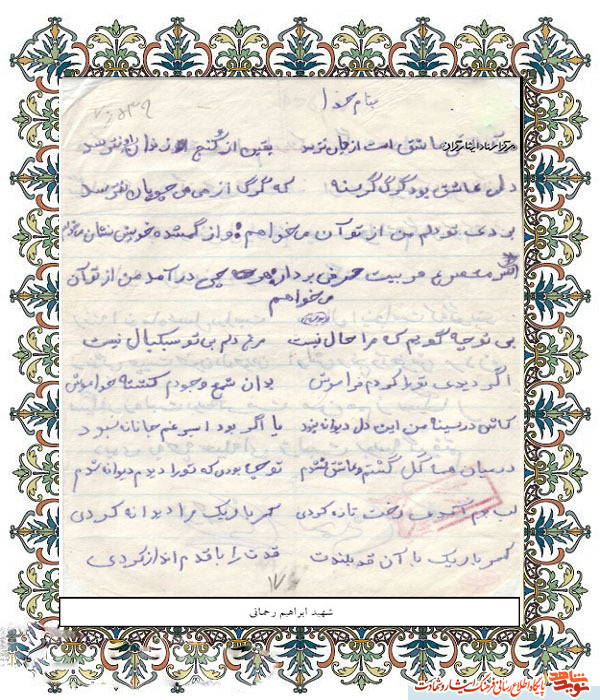 بنام خدا
عاشق است از جان نترسد یقین از کُنج زندان نترسد
دل عاشق بود گرگ گرسنه که گرگ از هی هی چوپان نترسد
بردی تو دلم من از تو آن میخواهم وز گمشده خویش نشان میخواهم
هر بیت حرفی بردار هر چه در آمد من از تو آن
میخواهم
بی تو چه گویم که مرا حال نیست مرغ دلم بی تو سبکبال نیست
اگر دیدی تو را کردم فراموش بدان شمع وجودم گشته خواموش
کاش در سینه من این دل دیوانه نبود یا اگر بود اسیر غم جانانه نبود
در میان گل گشتم و عاشق نشدم تو چه بودی که تو را دیدم دیوانه شدم
لب رخت تازه کردی کمر باریک مرا دیوانه کردی
کمر باریک با آن قد بلندت قدت را با قدم اندازکردی
۱۷
مرکز اسناد ایثارگران
شهید ابراهیم رحمانی
نوید شاهد
پایگاه اطلاع رسانی فرهنگ ایثار و شهادت